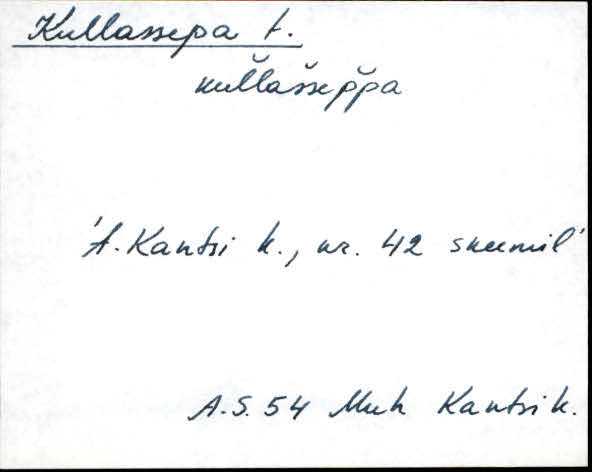 Kullassepa t.
kul̆las̆sep̆pa
't. Kantsi k., nr. 42 skeemil'
A.S. 54 Muh Kantsi k.